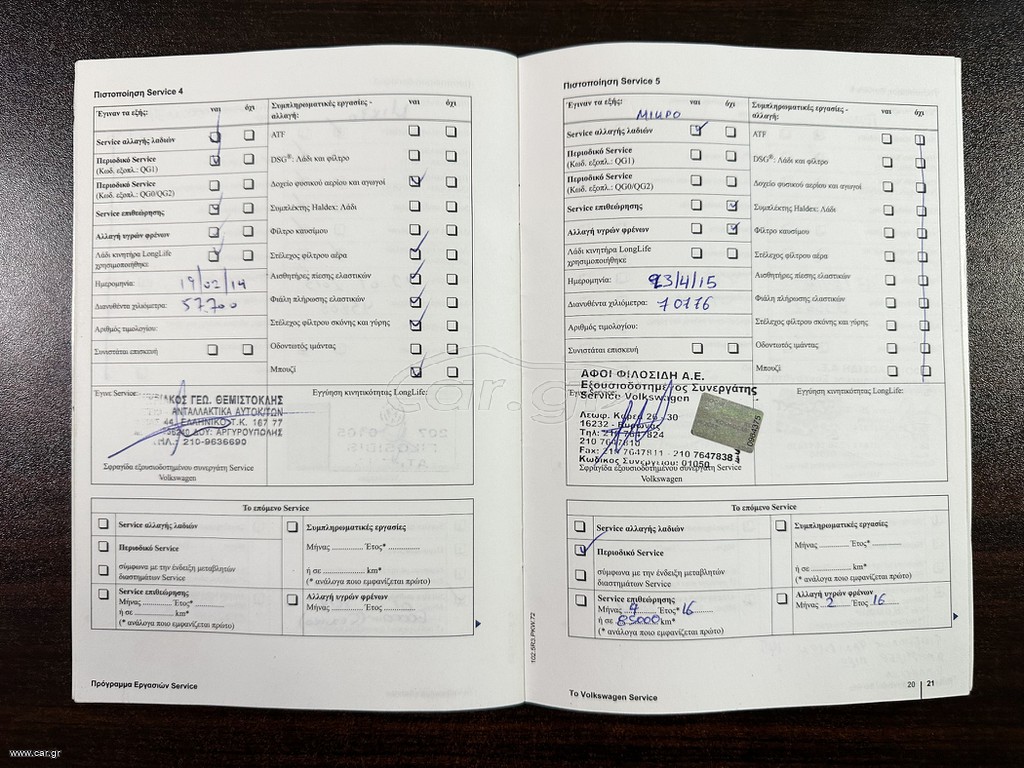 Πιστοποίηση Service 4
Έγιναν τα εξής: ναι όχι
Service αλλαγής λαδιών
Περιοδικό Service
(Κωδ. εξοπλ.: QG1)
Περιοδικό Service
(Κωδ. εξοπλ.: QG0/QG2)
Service επιθεώρησης
Αλλαγή υγρών φρένων
Λάδι κινητήρα LongLife
χρησιμοποιήθηκε
Ημερομηνία: 19/02/14
Διανυθέντα χιλιόμετρα: 57.700
Αριθμός τιμολογίου:
Συνιστάται επισκευή
Συμπληρωματικές εργασίες - ναι όχι
αλλαγή:
ATF
DSG®: Λάδι και φίλτρο
Δοχείο φυσικού αερίου και αγωγοί
Συμπλέκτης Haldex: Λάδι
Φίλτρο καυσίμου
Στέλεχος φίλτρου αέρα
Αισθητήρες πίεσης ελαστικών
Φιάλη πλήρωσης ελαστικών
Στέλεχος φίλτρου σκόνης και γύρης
Οδοντωτός ιμάντας
Μπουζί
Έγινε Service:
ΓΕΩ. ΘΕΜΙΣΤΟΚΛΗΣ
ΑΝΤΑΛΛΑΚΤΙΚΑ ΑΥΤΟΚ/ΤΩΝ
44, ΕΛΛΗΝΙΚΟ Τ.Κ. 167 77
ΔΟΥ: ΑΡΓΥΡΟΥΠΟΛΗΣ
210-9636690
Σφραγίδα εξουσιοδοτημένου συνεργάτη Service
Volkswagen
Εγγύηση κινητικότητας LongLife:
Το επόμενο Service
Service αλλαγής λαδιών
Περιοδικό Service
σύμφωνα με την ένδειξη μεταβλητών
διαστημάτων Service
Service επιθεώρησης
Μήνας ............ Έτος* ............
ή σε ............ km*
(* ανάλογα ποιο εμφανίζεται πρώτο)
Συμπληρωματικές εργασίες
Μήνας ............ Έτος* ............
ή σε ............ km*
(* ανάλογα ποιο εμφανίζεται πρώτο)
Αλλαγή υγρών φρένων
Μήνας ............ Έτος ............
Πρόγραμμα Εργασιών Service
102.5R3.PKW.72
Πιστοποίηση Service 5
Έγιναν τα εξής: ναι όχι
ΜΙΚΡΟ
Service αλλαγής λαδιών
Περιοδικό Service
(Κωδ. εξοπλ.: QG1)
Περιοδικό Service
(Κωδ. εξοπλ.: QG0/QG2)
Service επιθεώρησης
Αλλαγή υγρών φρένων
Λάδι κινητήρα LongLife
χρησιμοποιήθηκε
Ημερομηνία: 23/4/15
Διανυθέντα χιλιόμετρα: 70776
Αριθμός τιμολογίου:
Συνιστάται επισκευή
Συμπληρωματικές εργασίες - ναι όχι
αλλαγή:
ATF
DSG®: Λάδι και φίλτρο
Δοχείο φυσικού αερίου και αγωγοί
Συμπλέκτης Haldex: Λάδι
Φίλτρο καυσίμου
Στέλεχος φίλτρου αέρα
Αισθητήρες πίεσης ελαστικών
Φιάλη πλήρωσης ελαστικών
Στέλεχος φίλτρου σκόνης και γύρης
Οδοντωτός ιμάντας
Μπουζί
Έγινε Service:
ΑΦΟΙ ΦΙΛΟΣΙΔΗ Α.Ε.
Εξουσιοδοτημένος Συνεργάτης
Service Volkswagen
Λεωφ. Καρέα 26 - 30
16232 - Βύρωνας
Τηλ: 210 7647824
210 7647810
Fax: 210 7647811 - 210 7647838
Κωδικός Συνεργείου: 01050
0994375
Σφραγίδα εξουσιοδοτημένου συνεργάτη Service
Volkswagen
Εγγύηση κινητικότητας LongLife:
Το επόμενο Service
Service αλλαγής λαδιών
Περιοδικό Service
σύμφωνα με την ένδειξη μεταβλητών
διαστημάτων Service
Service επιθεώρησης
Μήνας 4 Έτος* 16
ή σε 85000 km*
(* ανάλογα ποιο εμφανίζεται πρώτο)
Συμπληρωματικές εργασίες
Μήνας ............ Έτος* ............
ή σε ............ km*
(* ανάλογα ποιο εμφανίζεται πρώτο)
Αλλαγή υγρών φρένων
Μήνας 2 Έτος 16
Το Volkswagen Service
20 | 21
car.gr
www.car.gr